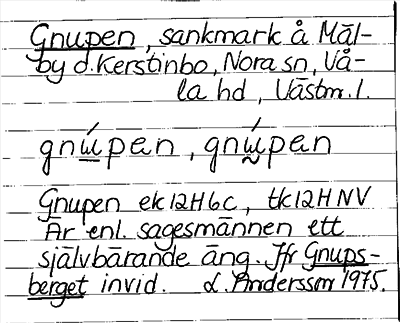 Gnupen, sankmark å Mål-
by o. Kerstinbo, Nora sn, Vå-
la hd, Västm. l.
gnɯ́pen, gnɯ̰́pen
Gnupen ek 12H6c, tk 12H NV
Är enl. sagesmannen ett
självbärande äng. Jfr Gnups-
berget invid. L. Andersson 1975.